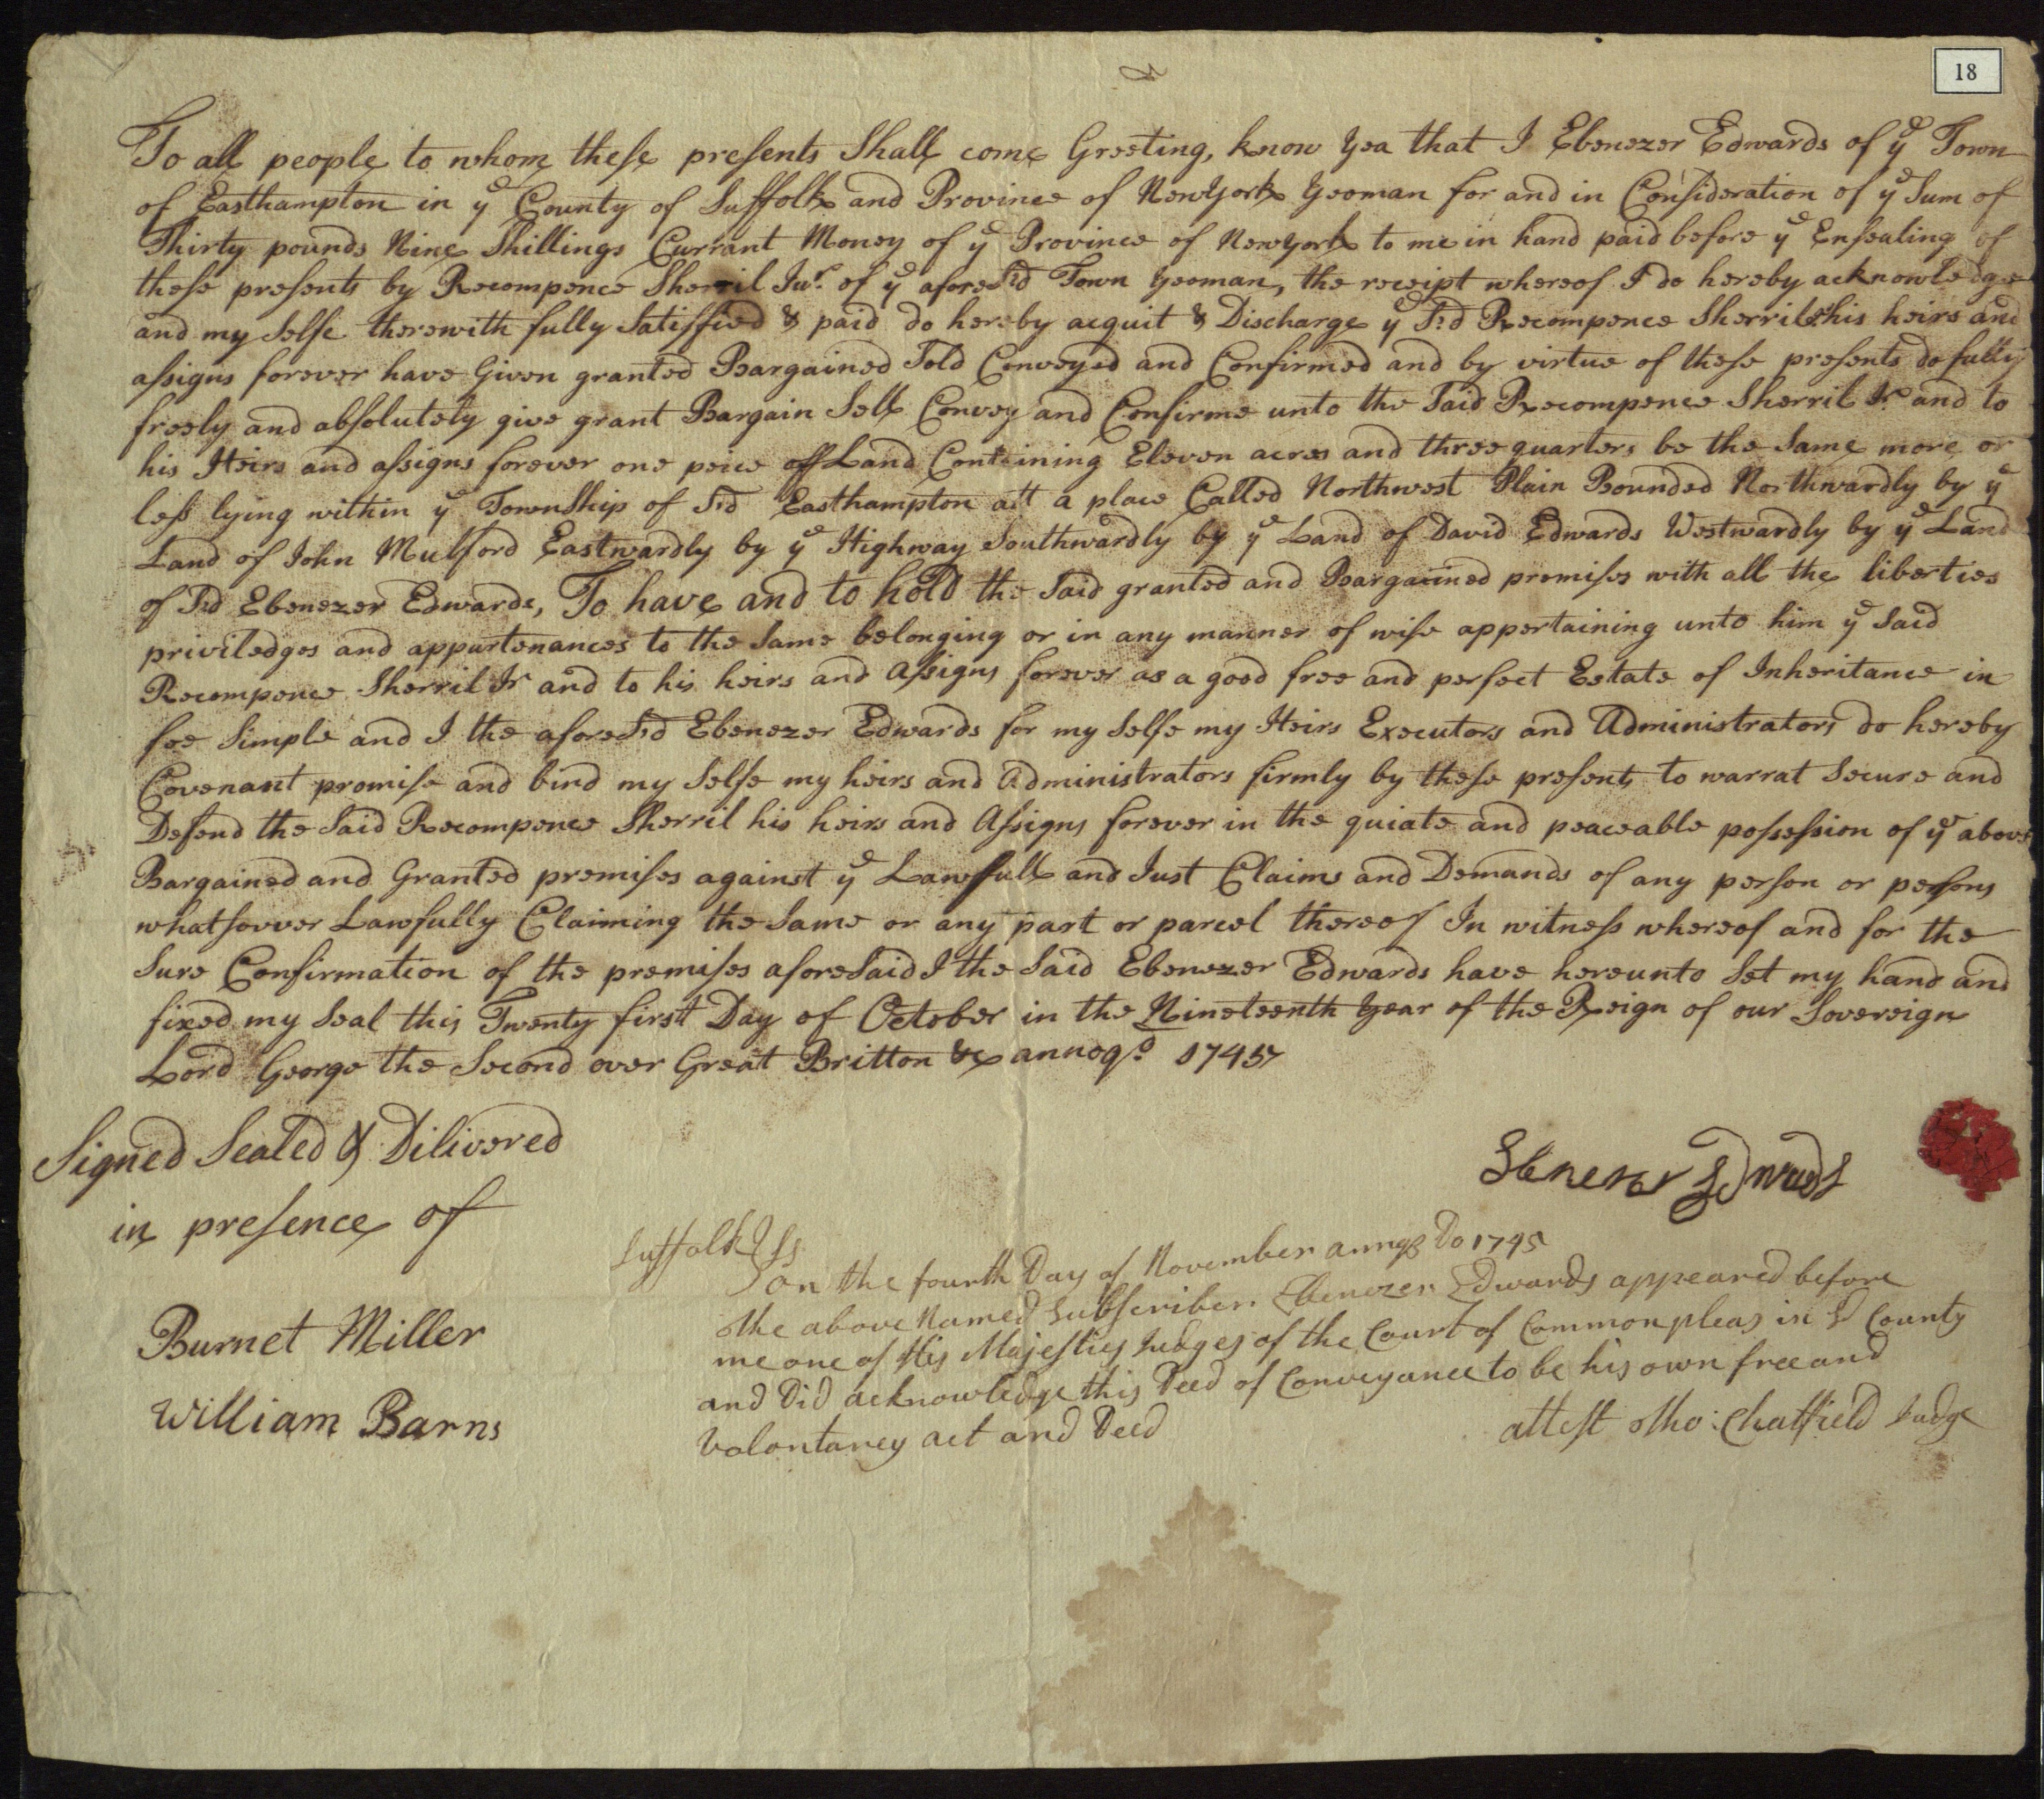 18
To all people to whom these presents Shall come Greeting, know Yea that I Ebenezer Edwards of ye Town
of Easthampton in ye County of Suffolk and Province of NewYork Yeoman for and in Consideration of ye Sum of
Thirty pounds Nine Shillings Currant Money of ye Province of Newyork to me in hand paid before ye Ensealing of
these presents by Recompence Sherril Jur. of ye aforeSd Town Yeoman, the receipt whereof I do hereby acknowledge
and my Selfe therewith fully Satisfied & paid do hereby acquit & Discharge ye Sd Recompence Sherril his heirs and
assigns forever have Given granted Bargained Sold Conveyed and Confirmed and by virtue of these presents do fully
freely and absolutely give grant Bargain Sell Convey and Confirme unto the Said Recompence Sherril Jr and to
his Heirs and assigns forever one peice off Land Containing Eleven acres and three quarters be the Same more or
less lying within ye TownShip of Sd Easthampton att a place Called Northwest Plain Bounded Northwardly by ye
Land of John Mulford Eastwardly by ye Highway Southwardly by ye Land of David Edwards Westwardly by ye Land
of Sd Ebenezer Edwards, To have and to hold the Said granted and Bargained premises with all the liberties
priviledges and appurtenances to the Same belonging or in any manner of wise appertaining unto him ye Said
Recompence Sherril Jr and to his heirs and Assigns forever as a good free and perfect Estate of Inheritance in
fee Simple and I the aforeSd Ebenezer Edwards for my Selfe my Heirs Executors and Administrators do hereby
Covenant promise and bind my Selfe my heirs and Administrators firmly by these presents to warrat Secure and
Defend the Said Recompence Sherril his heirs and Assigns forever in the quiate and peaceable possession of ye above
Bargained and Granted premises against ye Lawfull and Just Claims and Demands of any person or persons
whatsoever Lawfully Claiming the Same or any part or parcel thereof In witness whereof and for the
Sure Confirmation of the premises aforeSaid I the Said Ebenezer Edwards have hereunto Set my hand and
fixed my Seal this Twenty first Day of October in the Nineteenth Year of the Reign of our Sovereign
Lord George the Second over Great Britton &c annoqd 1745
Signed Sealed & Dilivered
in presence of
Ebenezer Edwards
Burnet Miller
William Barns
Suffolk Ss
on the fourth Day of November annoq Do 1745
the above Named Subscriber Ebenezer Edwards appeared before
me one of His Majesties Judges of the Court of Common pleas in Sd County
and Did acknowledge this Deed of Conveyance to be his own free and
Volontarey act and Deed
attest Tho: Chatfield Judge